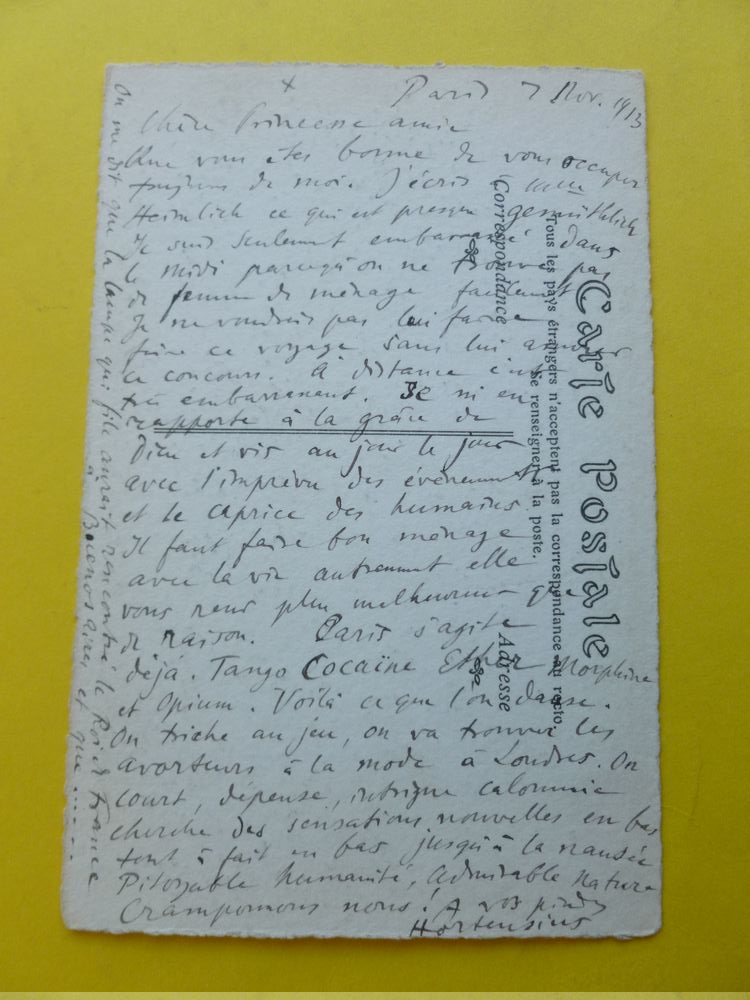 Paris 7 Nov. 1913
Chère Princesse amie
Que vous êtes bonne de vous occuper
toujours de moi. J'écris
Heimlich ce qui est presque gemüthlich
Je suis seulement embarrassé dans
le midi parcequ'on ne trouve pas
de femme de ménage facilement
Je ne voudrais pas lui faire
faire ce voyage sans lui assurer
ce concours. A distance c'est
très embarrassant. Je m'en
rapporte à la grâce de
Dieu et vis au jour le jour
avec l'imprévu des événements
et le caprice des humains.
Il faut faire bon ménage
avec la vie autrement elle
vous rend plus malheureux que
de raison. Paris s'agite
déjà. Tango Cocaïne Ether Morphine
et Opium. Voilà ce que l'on danse.
On triche au jeu, on va trouver les
avorteurs à la mode à Londres. On
court, dépense, intrigue calomnie
cherche des sensations nouvelles en bas
tout à fait en bas jusqu'à la nausée
Pitoyable humanité, admirable nature
Cramponnons nous! A vos pieds
Hortensius
On me dit que la lampe qui file aurait rencontré le Roi de France
à Buenos aires et que ......
Carte Postale
Tous les pays étrangers n'acceptent pas la correspondance au recto.
Se renseigner à la poste.
Correspondance
Adresse